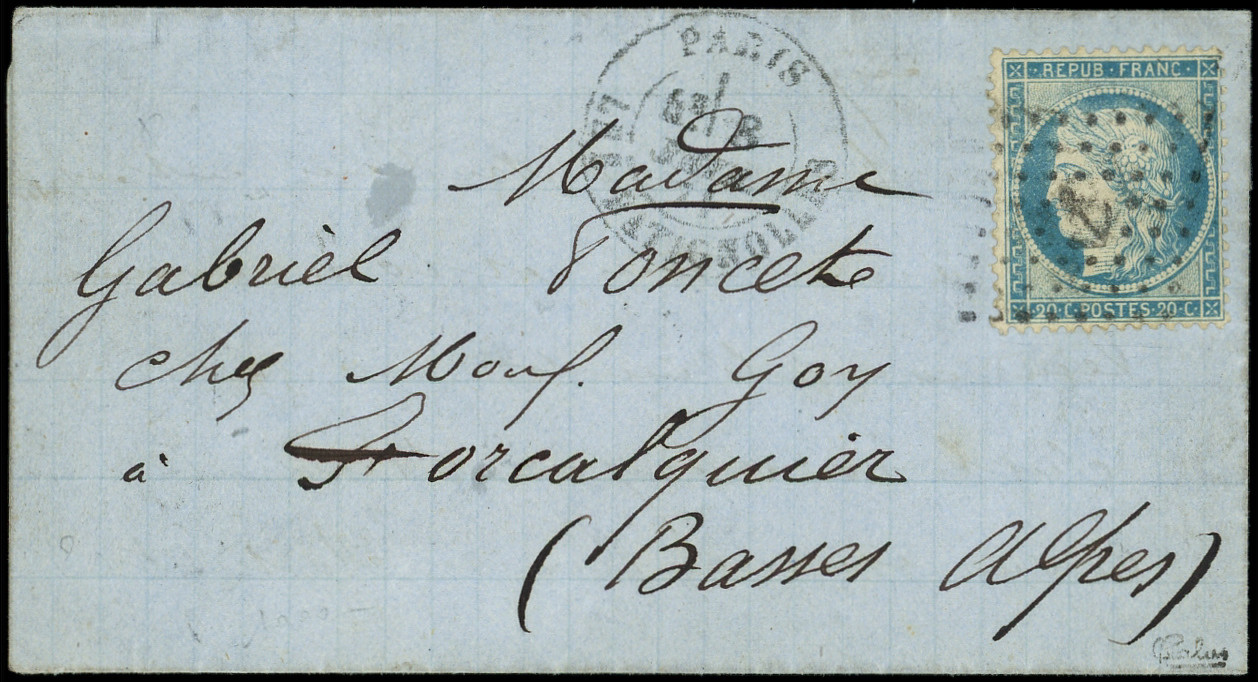 PARIS
LES BATIGNOLLES
REPUB FRANC
20 · C · POSTES · 20 · C
Madame
Gabriel Poncet
chez Mons. Goy
à Forcalquier
(Basses Alpes)